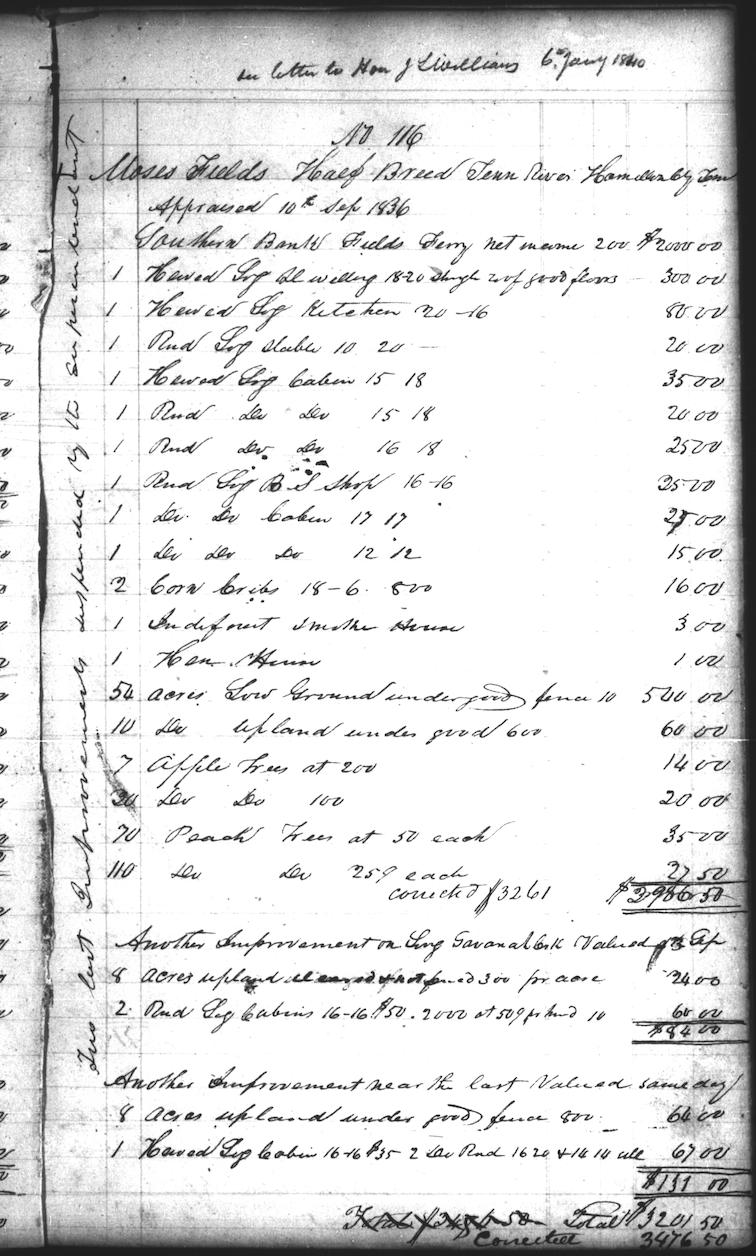 see letter to Hon J L Williams 6th Jany 1840
No 116
Moses Fields Half Breed Tenn River Hamilton Cty Tenn
Appraised 10th Sep 1836
Southern Bank Fields Ferry net income 200 $2000 00
1 Hewed Log Dwelling 18-20 shingle roof good floors 300 00
1 Hewed Log Kitchen 20-16 80 00
1 Rnd Log Stable 10 20 20 00
1 Hewed Log Cabin 15 18 35 00
1 Rnd Do Do 15 18 20 00
1 Rnd Do Do 16 18 25 00
1 Rnd Log B S Shop 16-16 25 00
1 Do Do Cabin 17 17 25 00
1 Do Do Do 12 12 15 00
2 Corn Cribs 18-6. 800 16 00
1 Indifirent Smoke House 3 00
1 Hen House 1 00
54 acres Low Ground under good fence 10 540 00
10 Do upland under good 600 60 00
7 Apple Trees at 200 14 00
20 Do Do 100 20 00
70 Peach Trees at 50 each 35 00
110 Do Do 25¢ each 27 50
corrected $3261 $2986.50
Another Improvement on Long Savanah Crk Valued Sep
8 acres upland cleared & not fenced 300 pr acre 24 00
2 Rnd Log Cabins 16-16 $50. 2000 at 50¢ pr hund 10 60 00
$84 00
Another Improvement near the last Valued same day
8 Acres upland under good fence 800 64 00
1 Hewed Log Cabin 16-16 $35 2 Do Rnd 16 20 & 14 14 all 67 00
$131 00
Total $3476 50 Total $3201 50
Corrected 3476 50
Two last Improvements suspended by the superintendent